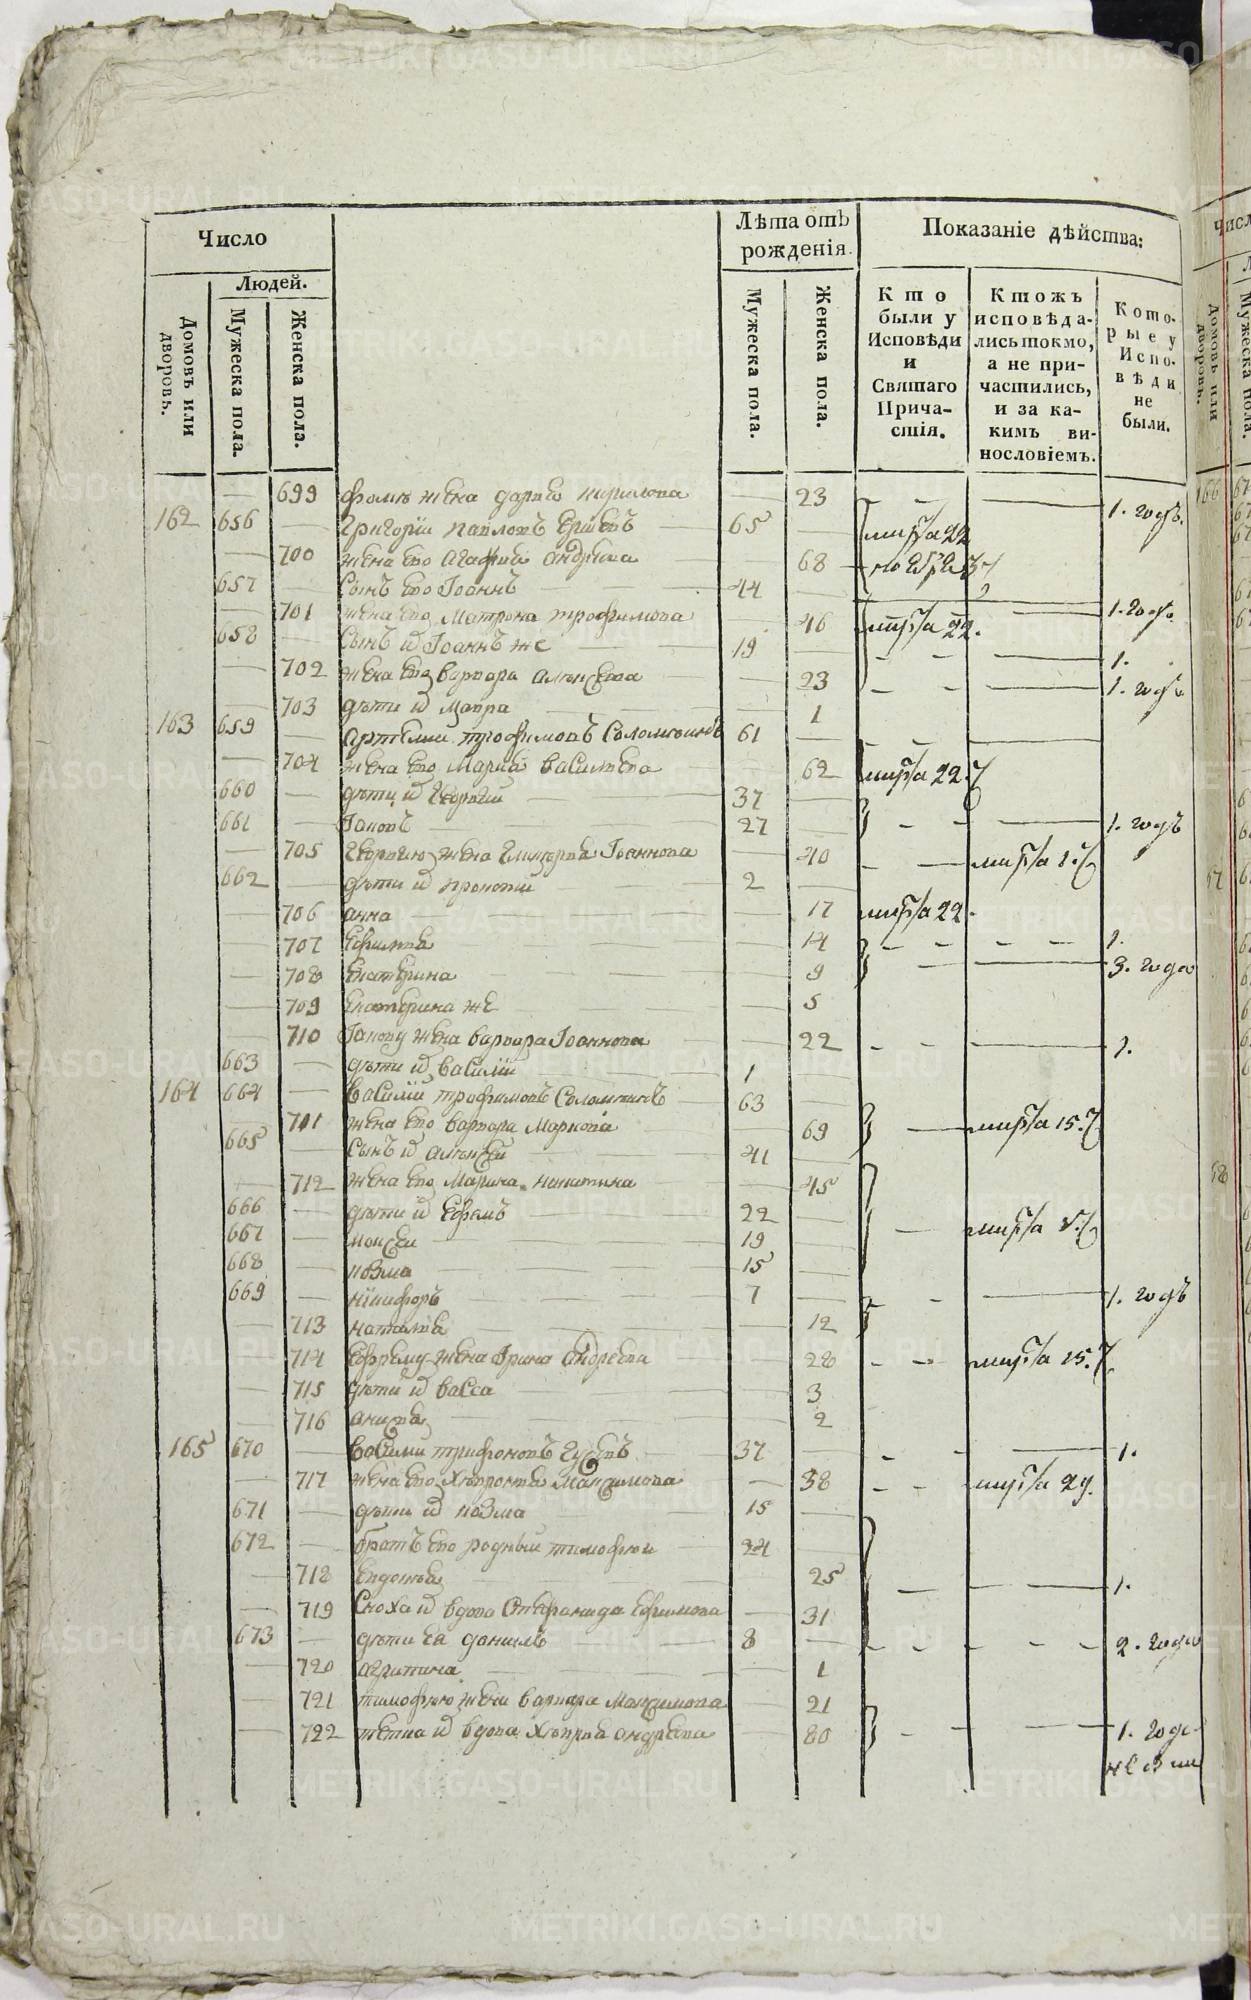 Число
Лѣта отъ рожденія.
Показаніе дѣйства:
Людей.
Домовъ или дворовъ.
Мужеска пола.
Женска пола.
Мужеска пола.
Женска пола.
Кто были у Исповѣди и Святаго Причастія.
Ктожъ исповѣдались токмо, а не причастились, и за какимъ винословіемъ.
Которые у Исповѣди не были.
699 жена дарья кирилова 23 1. годъ.
162 656 Григорїи павловъ 65 марта 22
700 жена его Агафья Андреева 68
657 Сынъ его Іоаннъ 44
701 жена его Матрона трофимова 46 марта 22. 1. годъ
658 Сынъ и Іоаннъ же 19 1.
702 жена его варвара алексеева 23 1. годъ
703 дѣти и Мавра 1
163 659 Артемии трофимовъ 61
704 жена его Марья василева 62 марта 22.
660 дѣти и Георгии 37
661 Іаковъ 27 1. годъ
705 Георгию жена Іоаннова 40 марта
662 дѣти и прокопии 2
706 анна 17 марта 22.
707 14 1.
708 Екатерина 9 3. года
709 Екатерина же 5
710 Іакову жена варвара Іоаннова 22 1.
663 дѣти и василии 1
164 664 василии трофимовъ 63
711 жена его варвара Маркова 69 марта 15.
665 Сынъ и алексеи 41
712 жена его Марина никитина 45
666 дѣти и Ефремъ 22
667 моисеи 19 марта
668 козма 15
669 никифоръ 7 1. годъ
713 наталья 12
714 Ефрему жена Ирина Андреева 28 марта 15.
715 дѣти и васса 3
716 анисья 2
165 670 василии трифоновъ Гусевъ 37 1.
717 жена его Максимова 38 марта 29.
671 дѣти и козма 15
672 братъ его родныи тимофеи 24
718 Евдокья 25 1.
719 Сноха и вдова Стефанида Ефимова 31
673 дѣти ея данилъ 8 2. года
720 агрипина 1
721 тимофею жена варвара Максимова 21
722 тетка и вдова андреева 80 1. годъ